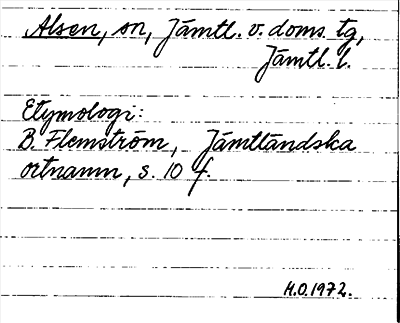 Alsen, sn, Jämtl. v. doms. tg,
Jämtl. l.
Etymologi:
B. Flemström, Jämtländska
ortnamn, s. 10 f.
M.O.1972.